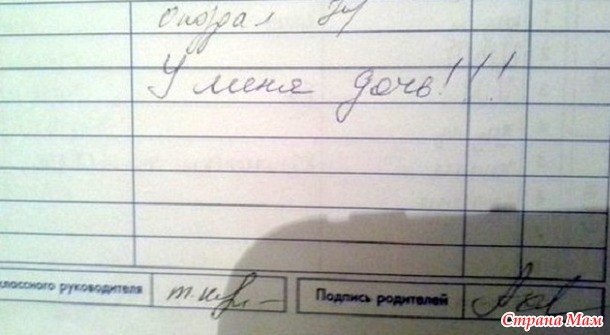 опоздал
У меня дочь!!!
классного руководителя
Подпись родителей
Страна Мам